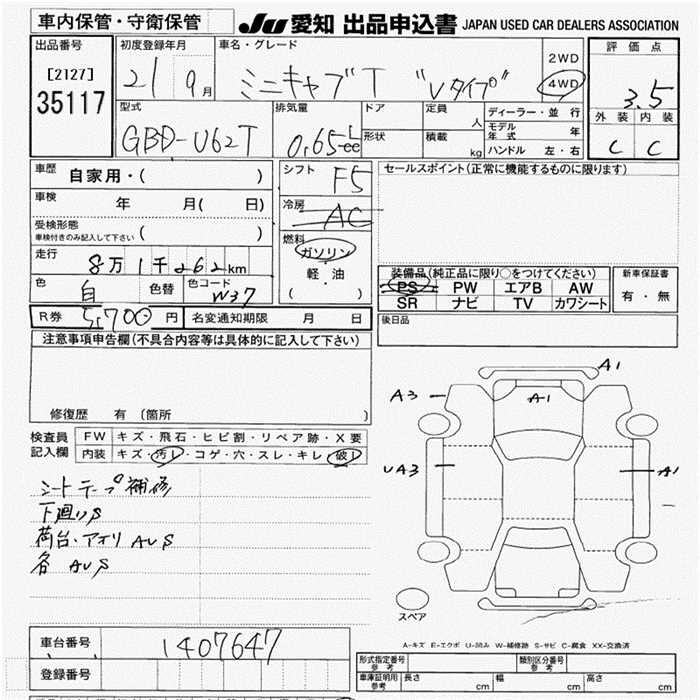 車内保管・守衛保管
JU 愛知 出品申込書 JAPAN USED CAR DEALERS ASSOCIATION
出品番号
[2127]
35117
初度登録年月
21 9月
車名・グレード
ミニキャブT "Vタイプ"
2WD
4WD
評価点
3.5
外装 内装
C C
型式
GBD-U62T
排気量
0.65 L
cc
ドア
形状
定員
人
積載
kg
ディーラー・並行
モデル年式 年
ハンドル 左・右
車歴
自家用・( )
車検
年 月( 日)
受検形態
車検付きのみ記入して下さい ( )
走行
8万1千262km
色
白
色替
色コード
W37
シフト
F5
冷房
AC
燃料
ガソリン
軽・油
( )
セールスポイント(正常に機能するものに限ります)
装備品(純正品に限り○をつけてください)
PS PW エアB AW
SR ナビ TV カワシート
新車保証書
有・無
後日品
R券 5,700 円 名変通知期限 月 日
注意事項申告欄(不具合内容等は具体的に記入して下さい)
修復歴 有(箇所 )
検査員記入欄
FW キズ・飛石・ヒビ割・リペア跡・X要
内装 キズ・汚レ・コゲ・穴・スレ・キレ・破レ
シートテープ補修
下廻りS
荷台・アオリ AUS
各 AUS
A1
A3
A1
UA3
A1
スペア
A-キズ E-エクボ U-凹み W-補修跡 S-サビ C-腐食 XX-交換済
車台番号
1407647
登録番号
形式指定番号
参考
類別区分番号
参考
車庫証明用
参考
長さ cm 幅 cm 高さ cm